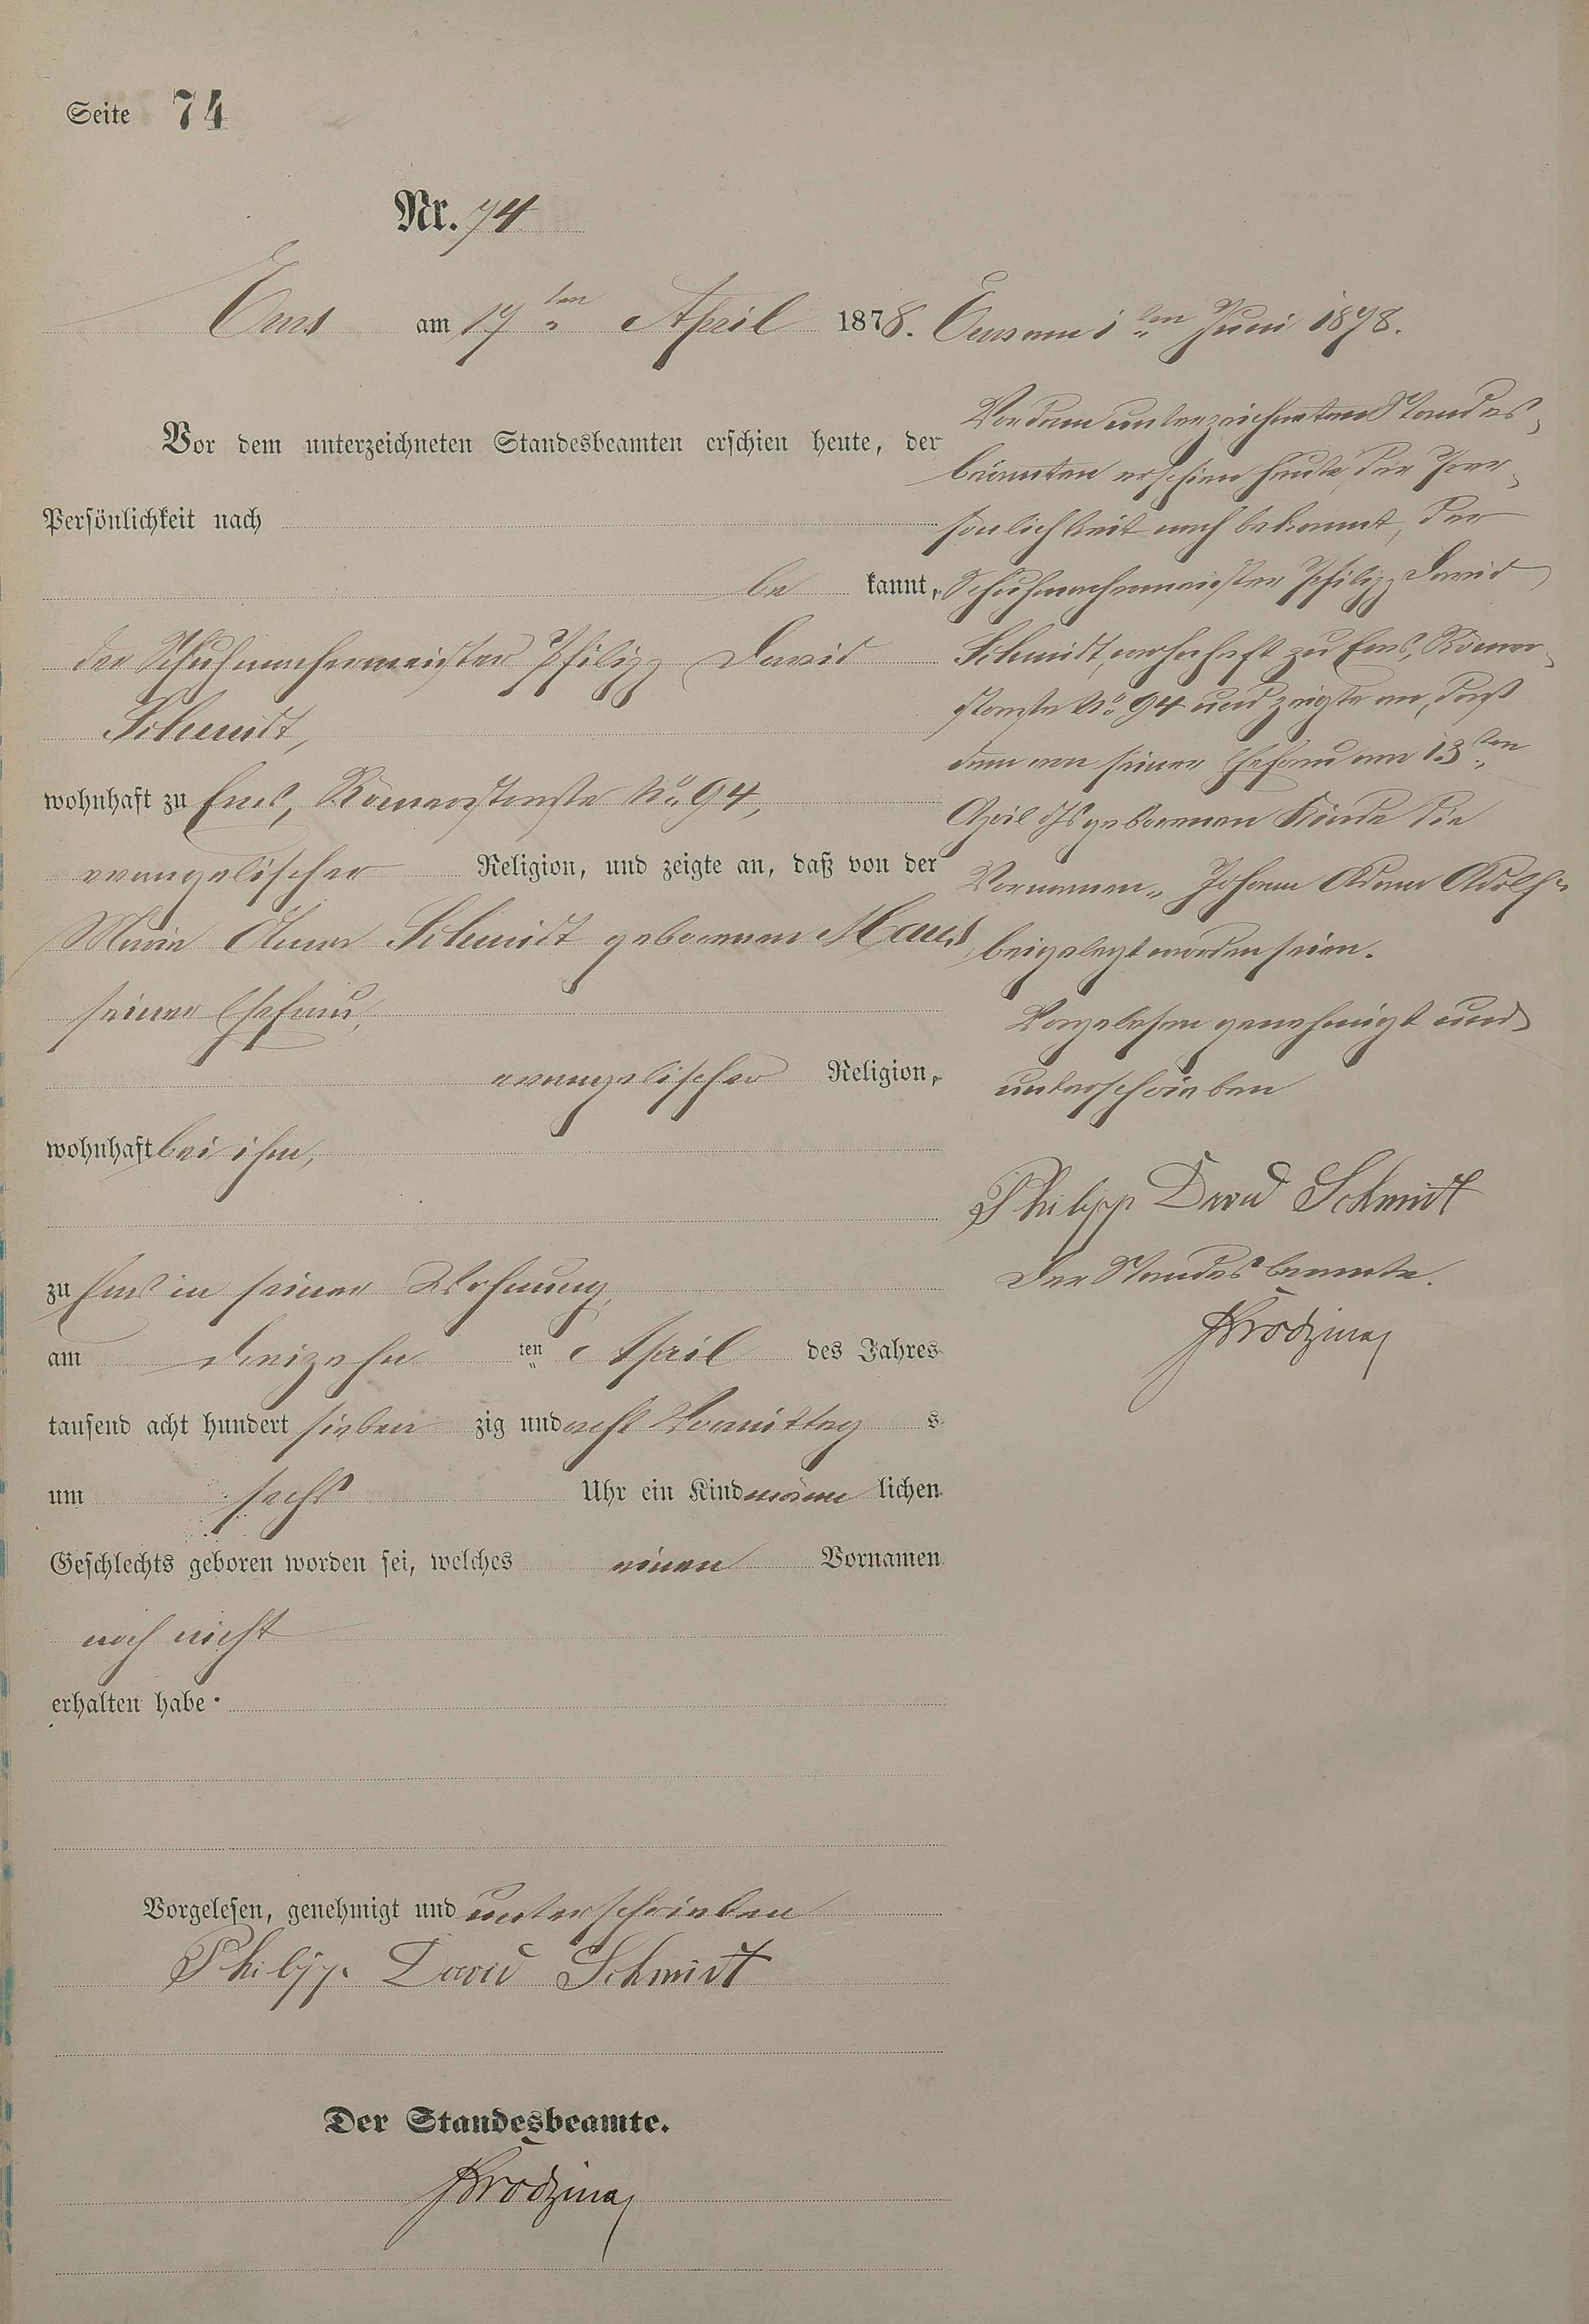 Seite 74
Nr. 74
Ems am 17ten April 1878.
Vor dem unterzeichneten Standesbeamten erschien heute, der
Persönlichkeit nach
be kannt,
der Schuhmachermeister Philipp David
Schmidt,
wohnhaft zu Ems, Römerstraße No 94,
evangelischer Religion, und zeigte an, daß von der
Marie Anna Schmidt geborenen Haus,
seiner Ehefrau,
evangelischer Religion,
wohnhaft bei ihm,
zu Ems in seiner Wohnung,
am dreizehn ten April des Jahres
tausend acht hundert sieben zig und acht Vormittag s
um sechs Uhr ein Kind männ lichen
Geschlechts geboren worden sei, welches einen Vornamen
noch nicht
erhalten habe.
Vorgelesen, genehmigt und unterschrieben
Philipp David Schmidt
Der Standesbeamte.
Ems am 1ten Juni 1878.
Vor dem unterzeichneten Standes-
beamten erschien heute, der Per-
sönlichkeit nach bekannt, der
Schuhmachermeister Philipp David
Schmidt, wohnhaft zu Ems, Römer-
straße No 94 und zeigte an, daß
dem von seiner Ehefrau am 13ten
April ds geborenen Kinde die
Vornamen „Johann Adam Adolf"
beigelegt worden seien.
Vorgelesen genehmigt und
unterschrieben
Philipp David Schmidt
Der Standesbeamte.